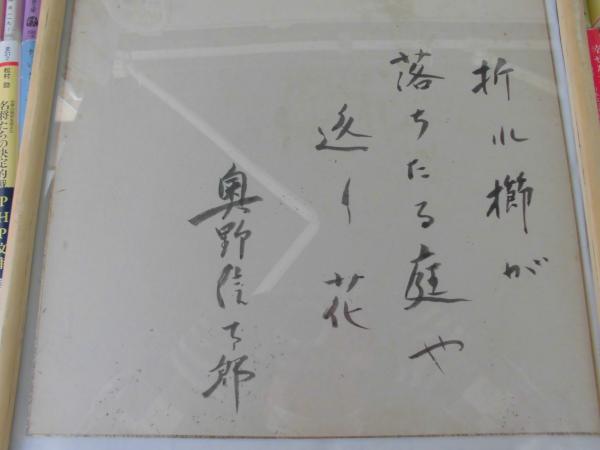 折れ櫛が
落ちたる庭や
返り花
奥野信太郎
松村劭
名将たちの決定的戦
PHP文庫
幸せ